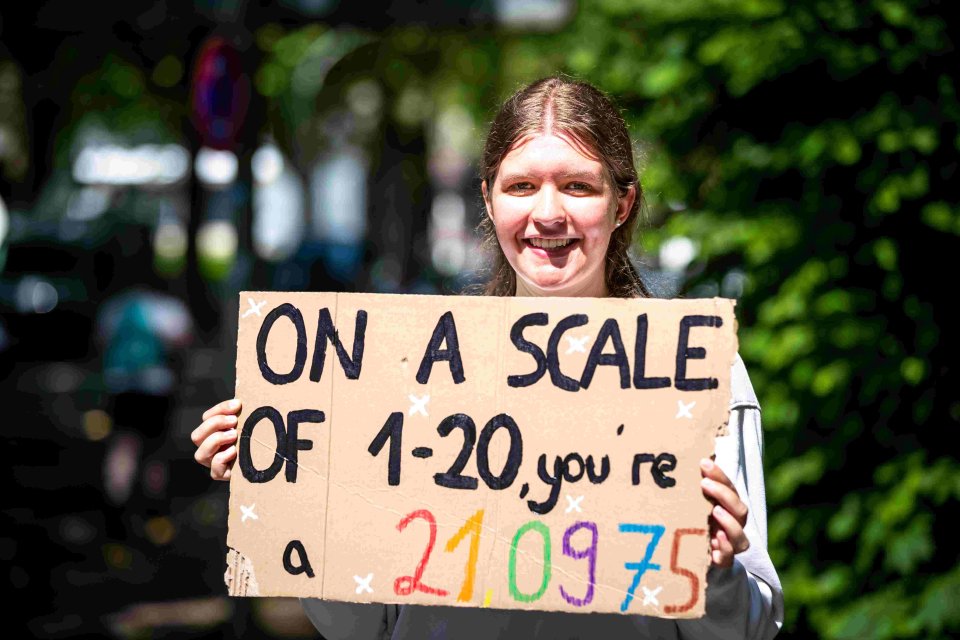 ON A SCALE
OF 1-20, you're
a 21,0975